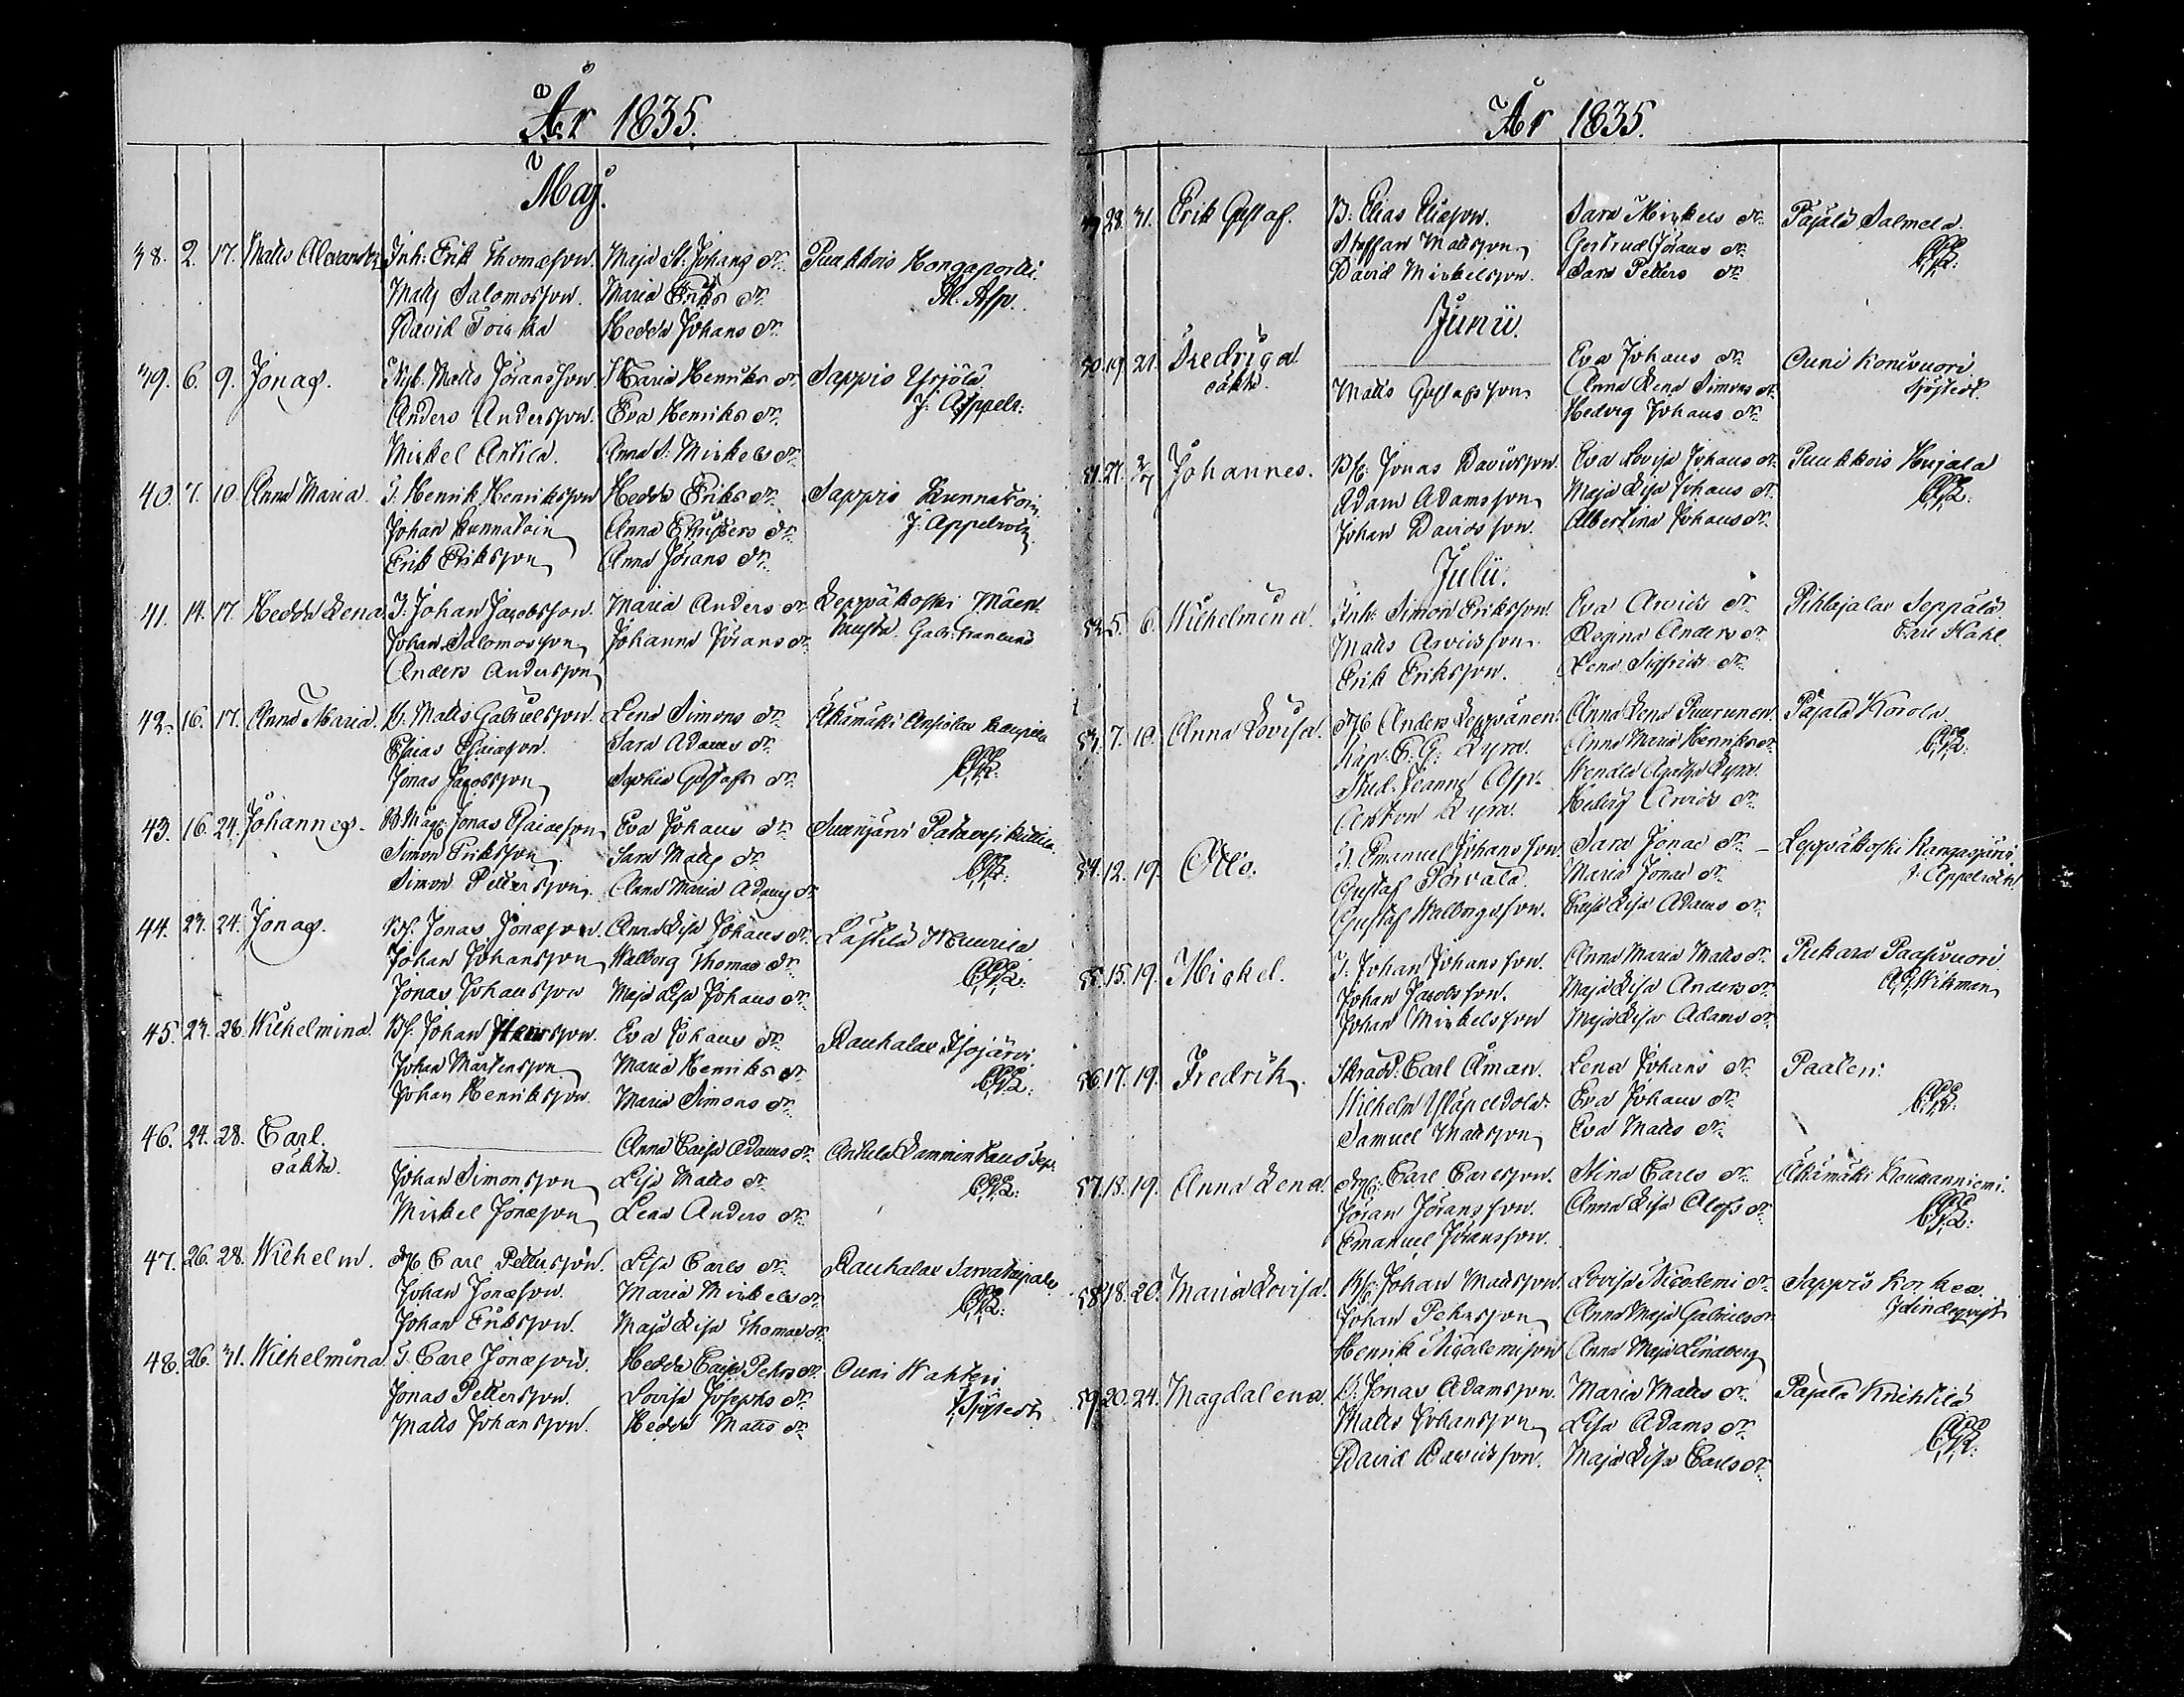 År 1835.
Maj.
38. 2. 17. Matts Alexander Inh: Erik Thomæson. Maja St: Johans dr. Puukkois Kongaportti
Matts Salomosson. Maria Eriks dr. M. Asp.
David Toiska Hedda Johans dr.
39. 6. 9. Jonas. Nyb. Matts Joransson Maria Henriks dr. Sappis Yrjölä
Anders Andersson. Eva Henriks dr. J: Appelr:
Mickel Antila. Anna S: Mickels dr.
40. 7. 10. Anna Maria. T. Henrik Henriksson Hedda Eriks dr. Sappis Kunnatoin
Johan Kunnatoin Anna dr. J: Appelroth
Erik Eriksson Anna Jörans dr.
41. 14. 17. Hedda Lena T. Johan Jacobsson. Maria Anders dr. Leppäkoski Mäen
Johan Salomosson Johanna Jörans dr. Gabr: Granlund
Anders Andersson
42. 16. 17. Anna Maria. B. Matts Gabrielsson. Lena Simons dr. Äkämäki
Esaias Esaiæson. Sara Adams dr.
Jonas Jacobsson Sophia Gustafs dr.
43. 16. 24. Johannes. Jonas Esaiæson Eva Johans dr. Suenjärvi
Simon Eriksson Sara Matts dr.
Simon Pettersson Anna Maria Adams dr.
44. 23. 24. Jonas. Bf. Jonas Jonæson. Anna Lisa Johans dr. Lassila Maurila
Johan Johansson Walborg Thomas dr.
Jonas Johansson Maja Lisa Johans dr.
45. 23. 28. Wilhelmina. Bf. Johan Eva Johans dr. Rauhalax Isojärvi
Johan Mårtensson Maria Henriks dr.
Johan Henriksson. Maria Simons dr.
46. 24. 28. Carl. Anna Caisa Adams dr. Anttila
oäkta. Johan Simonsson Lisa Matts dr.
Mickel Jonæson Lena Anders dr.
47. 26. 28. Wilhelm. Carl Pettersson. Lisa Carls dr. Rauhalax
Johan Jonæson. Maria Mickels dr.
Johan Eriksson. Maja Lisa Thomas dr.
48. 26. 31. Wilhelmina T. Carl Jonæson. Hedda Caisa Pehrs dr. Ouni Wahteri
Jonas Pettersson. Lovisa Josephs dr. Sjöstedt
Matts Johansson. Hedda Matts dr.
År 1835.
28. 31. Erik Gustaf. B: Elias Eliæson. Sara Mickels dr. Pajala Salmela.
Staffan Mattsson Gertrud Jörans dr.
David Mickelsson. Sara Petters dr.
Junii.
50. 19. 21. Fredrica Eva Johans dr. Ouni Konivuori
oäkta. Matts Gustafsson Anna Lena Simons dr. Sjöstedt
Hedvig Johans dr.
51. 27. Johannes. Jonas Davidsson. Eva Lovisa Johans dr. Puukkois Kujala
Adam Adamsson Maja Lisa Johans dr.
Johan Davidsson. Albertina Johans dr.
Julii.
52. 5. 6. Wilhelmina. Inh: Simon Eriksson. Eva Arvids dr. Pihlajalax Seppälä
Matts Arvidsson Regina Anders dr. Carl Hahl.
Erik Eriksson. Lena Sigfrids dr.
53. 7. 10. Anna Lovisa. Anders Leppänen. Anna Lena Puurunen Pajala Korola
E: G: Anna Maria Henriks dr.
Stud. Asp.
Anton Hedvig Arvids dr.
54. 12. 19. Otto. T. Emanuel Johansson. Sara Jonæ dr. Leppäkoski Kangasjärvi
Gustaf Pärvälä. Maria Jonæ dr. J. Appelroth
Gustaf Walborgsson. Lisa Adams dr.
55. 15. 19. Mickel. T. Johan Johansson. Anna Maria Matts dr. Piekara Paasivuori
Johan Jacobsson. Maja Lisa Anders dr. Wikman
Johan Mickelsson Maja Lisa Adams dr.
56. 17. 19. Fredrik Skrädd: Carl Åman. Lena Johans dr. Paaten:
Wilhelm Eva Johans dr.
Samuel Mattsson Eva Matts dr.
57. 18. 19. Anna Lena. Carl Carlsson. Stina Carls dr. Äkämäki Kaukanniemi.
Jöran Jöransson. Anna Lisa Olofs dr.
Emanuel Jöransson.
58. 18. 20. Maria Lovisa. Johan Mattsson. Lovisa Nicodemi dr. Sappis Korkea.
Johan Pehrsson Anna Maja Gabriels dr. J. Lindeqvist
Henrik Nicodemisson Anna Maja Lindberg
59. 20. 24. Magdalena. B. Jonas Adamsson. Maria Matts dr. Pajala Knihtilä
Matts Johansson Lisa Adams dr.
David Davidsson. Maja Lisa Carls dr.